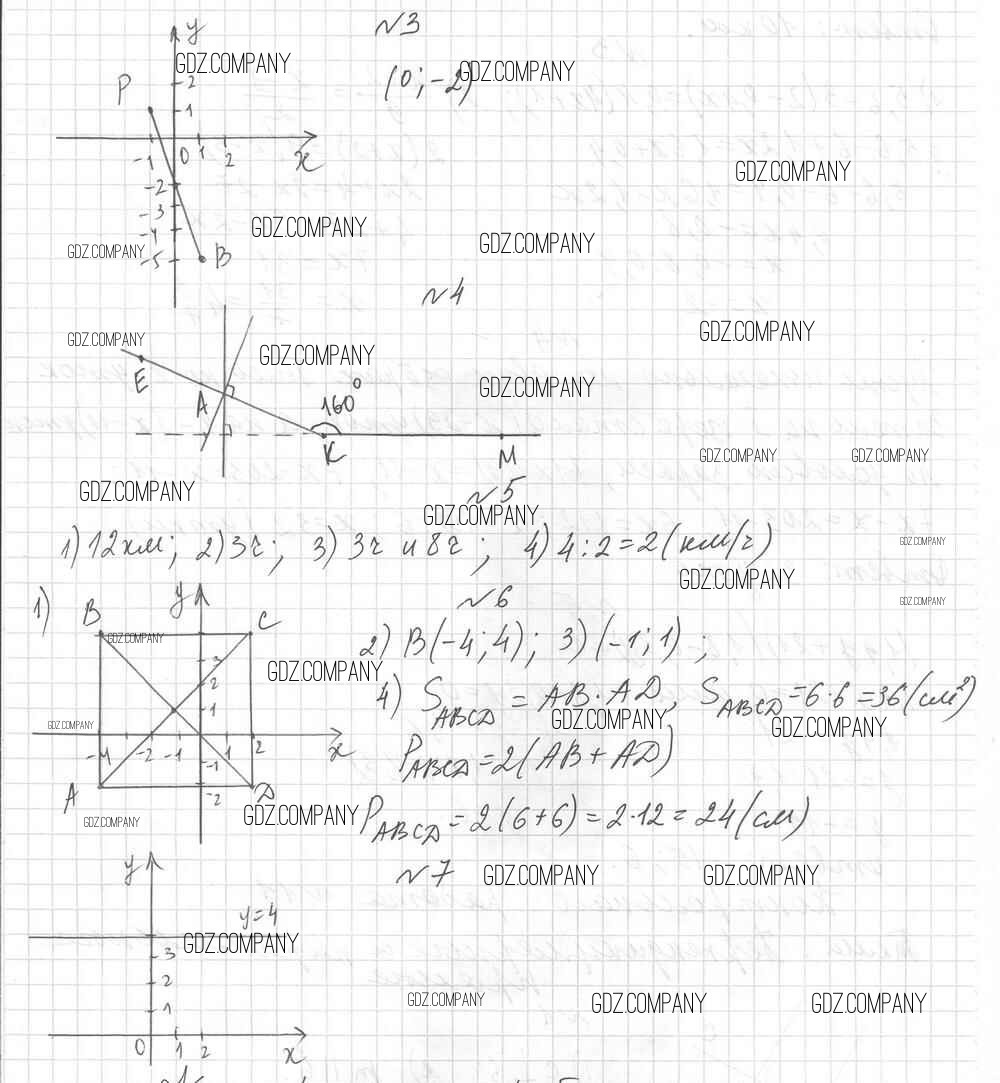 №3
y
GDZ.COMPANY
GDZ.COMPANY
(0; -2)
P
2
1
-1 0 1 2 x
GDZ.COMPANY
-2
-3
-4
-5
B
GDZ.COMPANY
GDZ.COMPANY
GDZ.COMPANY
№4
GDZ.COMPANY
GDZ.COMPANY
GDZ.COMPANY
E
A
160°
GDZ.COMPANY
K
M
GDZ.COMPANY
GDZ.COMPANY
GDZ.COMPANY
№5
GDZ.COMPANY
1) 12км; 2) 3ч; 3) 3ч и 8ч; 4) 4:2=2(км/ч)
GDZ.COMPANY
GDZ.COMPANY
GDZ.COMPANY
№6
1)
y
B
C
GDZ.COMPANY
2) B(-4; 4); 3) (-1; 1);
3
2
1
GDZ.COMPANY
4) S ABCD = AB·AD, S ABCD = 6·6=36(см²)
GDZ.COMPANY
GDZ.COMPANY
GDZ.COMPANY
-4 -2 -1 1 2 x
-1
-2
P ABCD = 2(AB+AD)
A
D
GDZ.COMPANY
GDZ.COMPANY
P ABCD = 2(6+6)=2·12=24(см)
№7
GDZ.COMPANY
GDZ.COMPANY
y
y=4
GDZ.COMPANY
3
2
1
0 1 2 x
GDZ.COMPANY
GDZ.COMPANY
GDZ.COMPANY